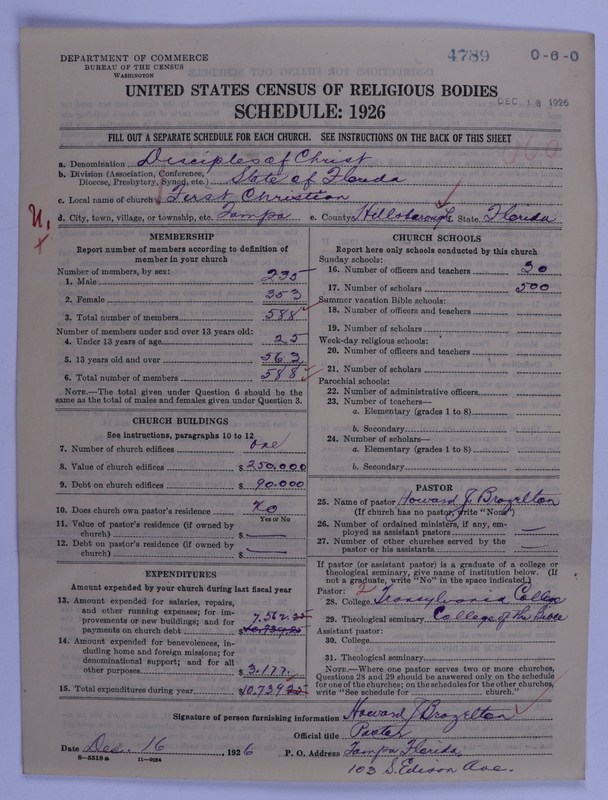 DEPARTMENT OF COMMERCE
BUREAU OF THE CENSUS
WASHINGTON
4789
0-6-0
UNITED STATES CENSUS OF RELIGIOUS BODIES
DEC 18 1926
SCHEDULE: 1926
FILL OUT A SEPARATE SCHEDULE FOR EACH CHURCH. SEE INSTRUCTIONS ON THE BACK OF THIS SHEET
a. Denomination Disciples of Christ
b. Division (Association, Conference, Diocese, Presbytery, Synod, etc.) State of Florida
c. Local name of church First Christian
d. City, town, village, or township, etc. Tampa e. County Hillsborough f. State Florida
U.
MEMBERSHIP
Report number of members according to definition of
member in your church
Number of members, by sex:
1. Male 235
2. Female 353
3. Total number of members 588
Number of members under and over 13 years old:
4. Under 13 years of age 25
5. 13 years old and over 563
6. Total number of members 588
NOTE.—The total given under Question 6 should be
same as the total of males and females given under Question 3.
CHURCH BUILDINGS
See instructions, paragraphs 10 to 12
7. Number of church edifices one
8. Value of church edifices $250.000
9. Debt on church edifices $90.000
10. Does church own pastor's residence No
Yes or No
11. Value of pastor's residence (if owned by
church) $ —
12. Debt on pastor's residence (if owned by
church) $ —
EXPENDITURES
Amount expended by your church during last fiscal year
13. Amount expended for salaries, repairs,
and other running expenses; for im-
provements or new buildings; and for 7.562.25
payments on church debt $10.739.25
14. Amount expended for benevolences, in-
cluding home and foreign missions; for
denominational support; and for all
other purposes $3.177.
15. Total expenditures during year $10.739.25
CHURCH SCHOOLS
Report here only schools conducted by this church
Sunday schools:
16. Number of officers and teachers 30
17. Number of scholars 500
Summer vacation Bible schools:
18. Number of officers and teachers
19. Number of scholars
Week-day religious schools:
20. Number of officers and teachers
21. Number of scholars
Parochial schools:
22. Number of administrative officers
23. Number of teachers—
a. Elementary (grades 1 to 8)
b. Secondary
24. Number of scholars—
a. Elementary (grades 1 to 8)
b. Secondary
PASTOR
25. Name of pastor Howard J. Brazelton
(If church has no pastor, write "None")
26. Number of ordained ministers, if any, em-
ployed as assistant pastors —
27. Number of other churches served by the
pastor or his assistants —
If pastor (or assistant pastor) is a graduate of a college or
theological seminary, give name of institution below. (If
not a graduate, write "No" in the space indicated.)
Pastor: 2
28. College Transylvania College
29. Theological seminary College of the Bible
Assistant pastor:
30. College
31. Theological seminary
NOTE.—Where one pastor serves two or more churches,
Questions 28 and 29 should be answered only on the schedule
for one of the churches; on the schedules for the other churches,
write "See schedule for church."
Signature of person furnishing information Howard J Brazelton
Official title Pastor
Date Dec. 16, 1926 P. O. Address Tampa Florida,
8—5518a 11—9084
103 S. Edison Ave.